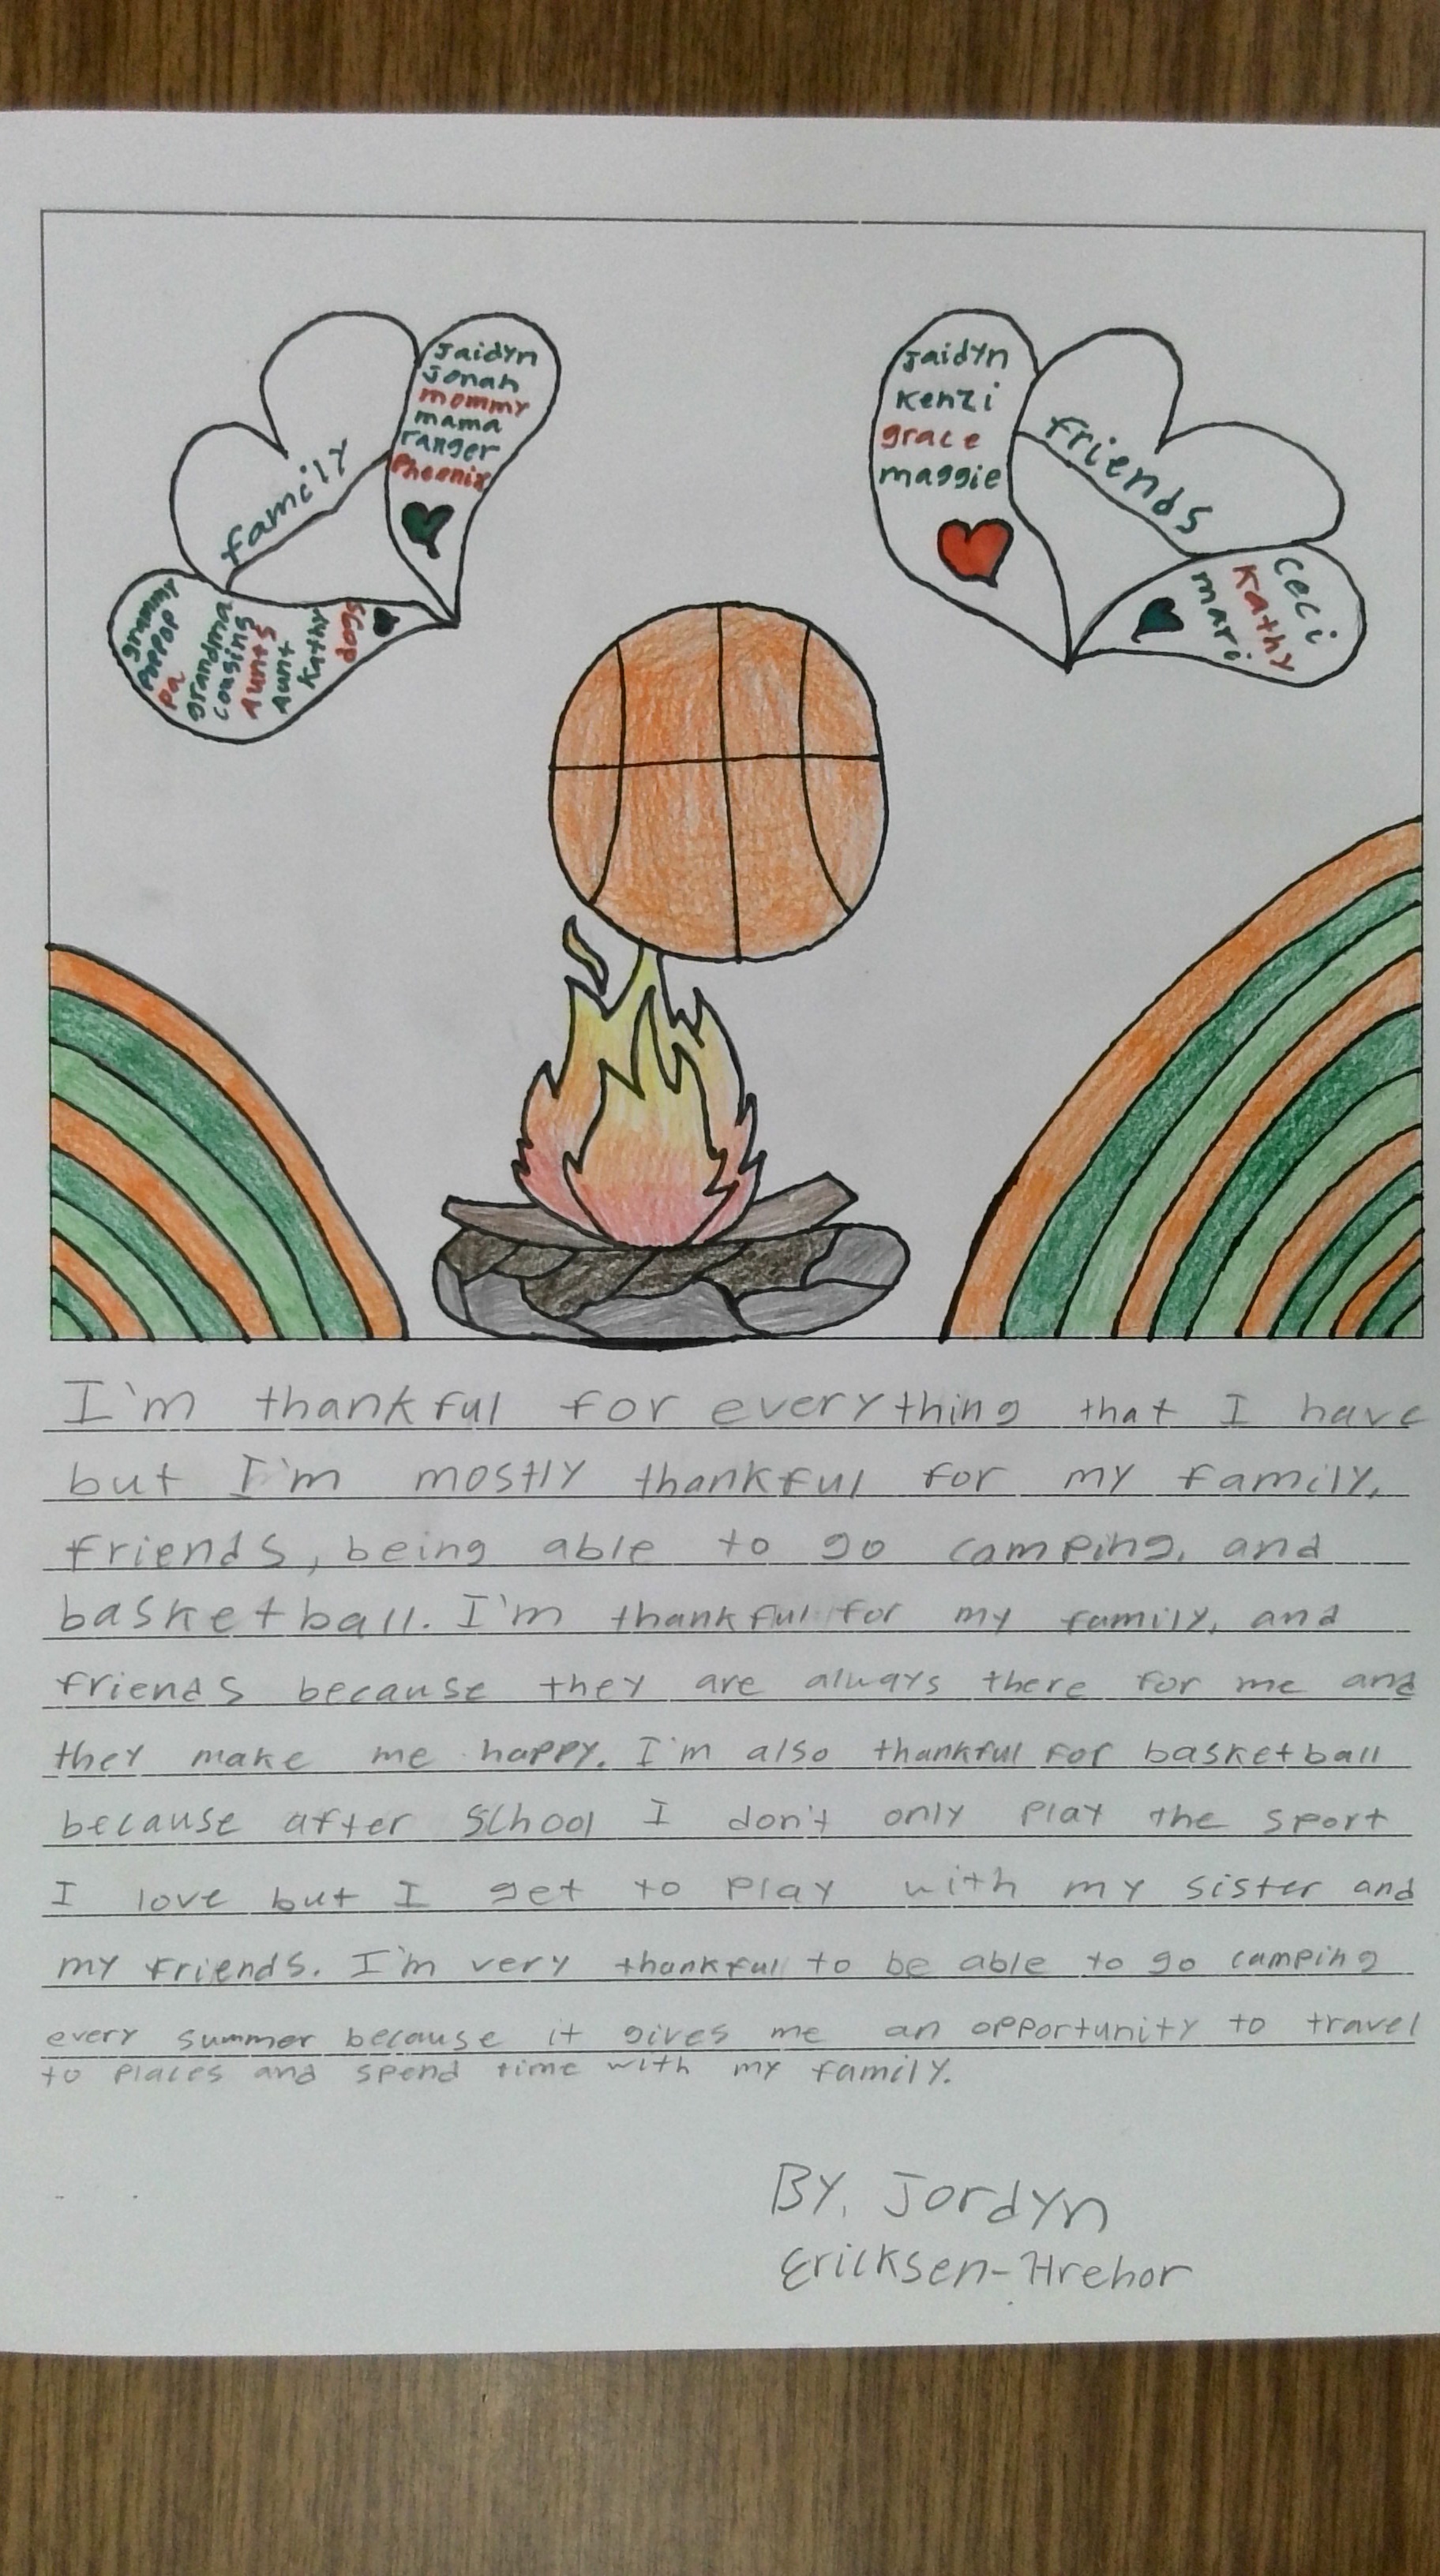 family
Jaidyn
Jonah
mommy
mama
ranger
Phoenix
grammy
PoPPOP
pa
grandma
cousins
aunts
Aunt
Kathy
dogs
Jaidyn
Kenzi
grace
maggie
friends
ceci
Kathy
mari
I'm thankful for everything that I have
but I'm mostly thankful for my family,
friends, being able to go camping, and
basketball. I'm thankful for my family, and
friends because they are always there for me and
they make me happy. I'm also thankful for basketball
because after school I don't only play the sport
I love but I get to play with my sister and
my friends. I'm very thankful to be able to go camping
every summer because it gives me an opportunity to travel
to places and spend time with my family.
By, Jordyn
Ericksen-Hrehor